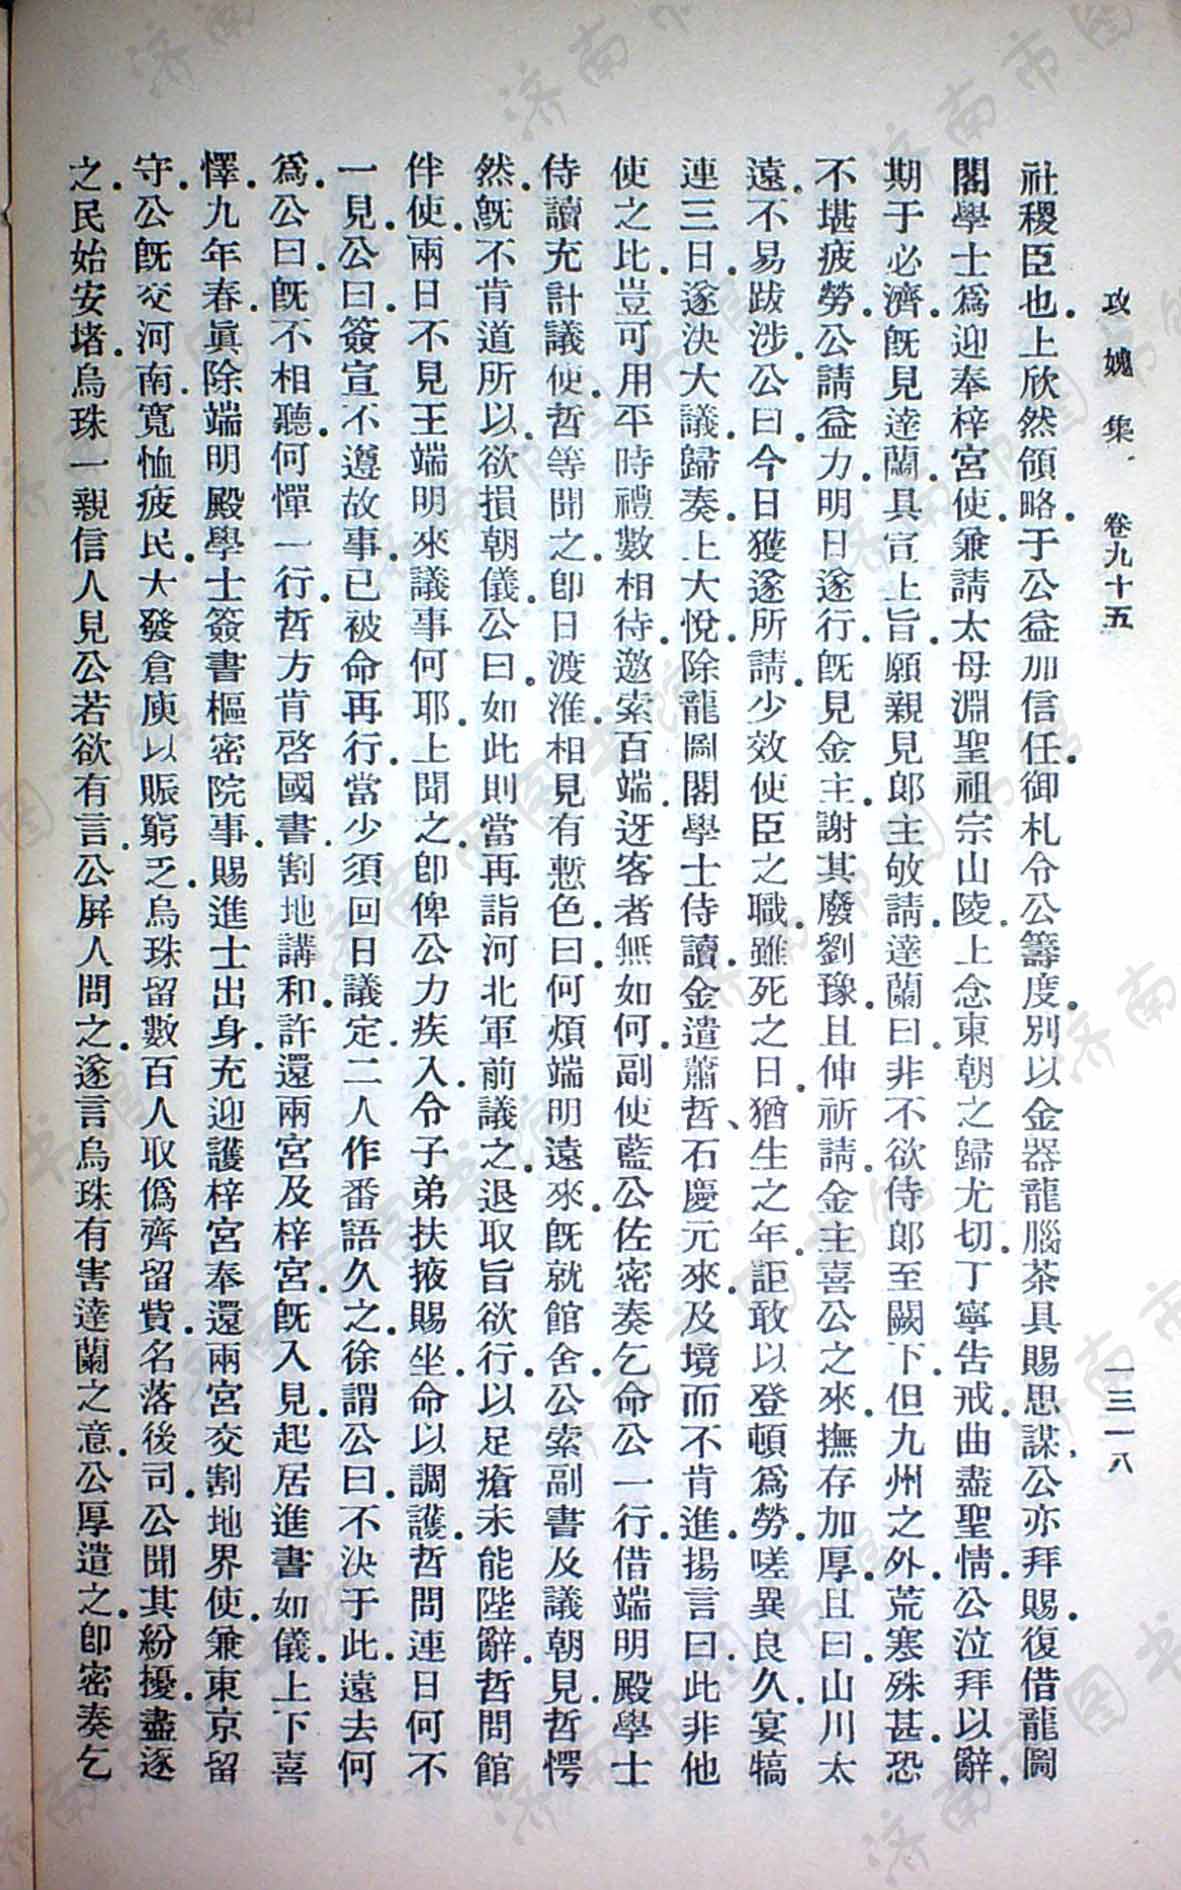 攻媿集 卷九十五 一三一八
社稷臣也.上欣然領略.于公益加信任.御札令公籌度.別以金器龍腦茶具賜思謀.公亦拜賜.復借龍圖
閣學士爲迎奉梓宮使.兼請太母淵聖祖宗山陵.上念東朝之歸尤切.丁寧告戒.曲盡聖情.公泣拜以辭.
期于必濟.旣見達蘭.具宣上旨.願親見郎主敬請.達蘭曰.非不欲侍郎至闕下.但九州之外.荒寒殊甚.恐
不堪疲勞.公請益力.明日遂行.旣見金主.謝其廢劉豫.且伸祈請.金主喜公之來.撫存加厚.且曰.山川太
遠.不易跋涉.公曰.今日獲遂所請.少效使臣之職.雖死之日.猶生之年.詎敢以登頓爲勞.嗟異良久.宴犒
連三日.遂決大議.歸奏.上大悅.除龍圖閣學士侍讀.金遣蕭哲、石慶元來.及境而不肯進.揚言曰.此非他
使之比.豈可用平時禮數相待.邀索百端.迓客者無如何.副使藍公佐密奏.乞命公一行.借端明殿學士
侍讀充計議使.哲等聞之.卽日渡淮.相見有慙色.曰.何煩端明遠來.旣就館舍.公索副書及議朝見.哲愕
然.旣不肯道所以.欲損朝儀.公曰.如此則當再詣河北軍前議之.退取旨欲行.以足瘡未能陛辭.哲問館
伴使.兩日不見王端明來議事何耶.上聞之.卽俾公力疾入.令子弟扶掖賜坐.命以調護.哲問連日何不
一見.公曰.簽宣不遵故事.已被命再行.當少須回日議定.二人作番語久之.徐謂公曰.不決于此.遠去何
爲.公曰.旣不相聽.何憚一行.哲方肯啓國書.割地講和.許還兩宮及梓宮.旣入見.起居進書如儀.上下喜
懌.九年春.眞除端明殿學士簽書樞密院事.賜進士出身.充迎護梓宮奉還兩宮交割地界使.兼東京留
守.公旣交河南.寬恤疲民.大發倉庾.以賑窮乏.烏珠留數百人取僞齊留貲.名落後司.公聞其紛擾.盡逐
之.民始安堵.烏珠一親信人見公.若欲有言.公屛人問之.遂言烏珠有害達蘭之意.公厚遣之.卽密奏乞